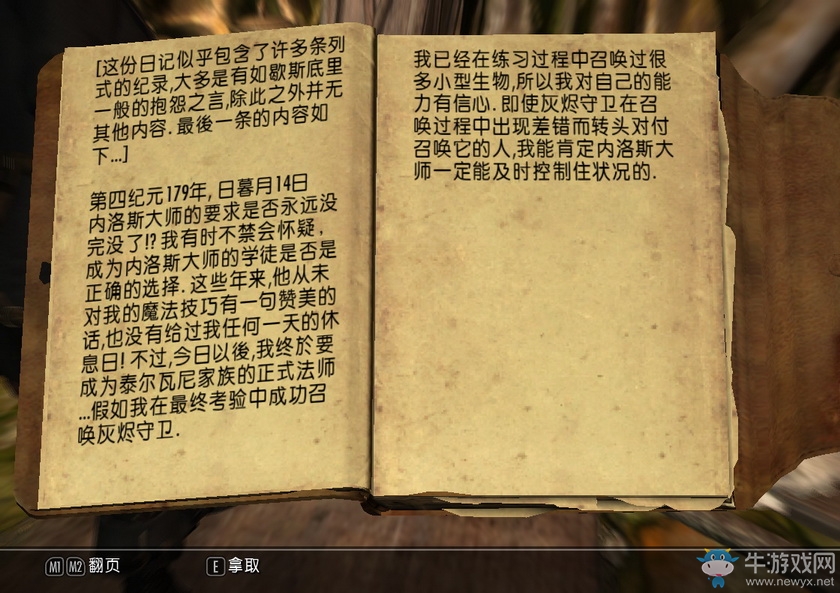 [这份日记似乎包含了许多条列
式的纪录,大多是有如歇斯底里
一般的抱怨之言,除此之外并无
其他内容.最後一条的内容如
下...]
第四纪元179年,日暮月14日
内洛斯大师的要求是否永远没
完没了!?我有时不禁会怀疑,
成为内洛斯大师的学徒是否是
正确的选择.这些年来,他从未
对我的魔法技巧有一句赞美的
话,也没有给过我任何一天的休
息日!不过,今日以後,我终於要
成为泰尔瓦尼家族的正式法师
...假如我在最终考验中成功召
唤灰烬守卫.
我已经在练习过程中召唤过很
多小型生物,所以我对自己的能
力有信心.即使灰烬守卫在召
唤过程中出现差错而转头对付
召唤它的人,我能肯定内洛斯大
师一定能及时控制住状况的.
M1 M2 翻页 E 拿取
牛游戏网
www.newyx.net